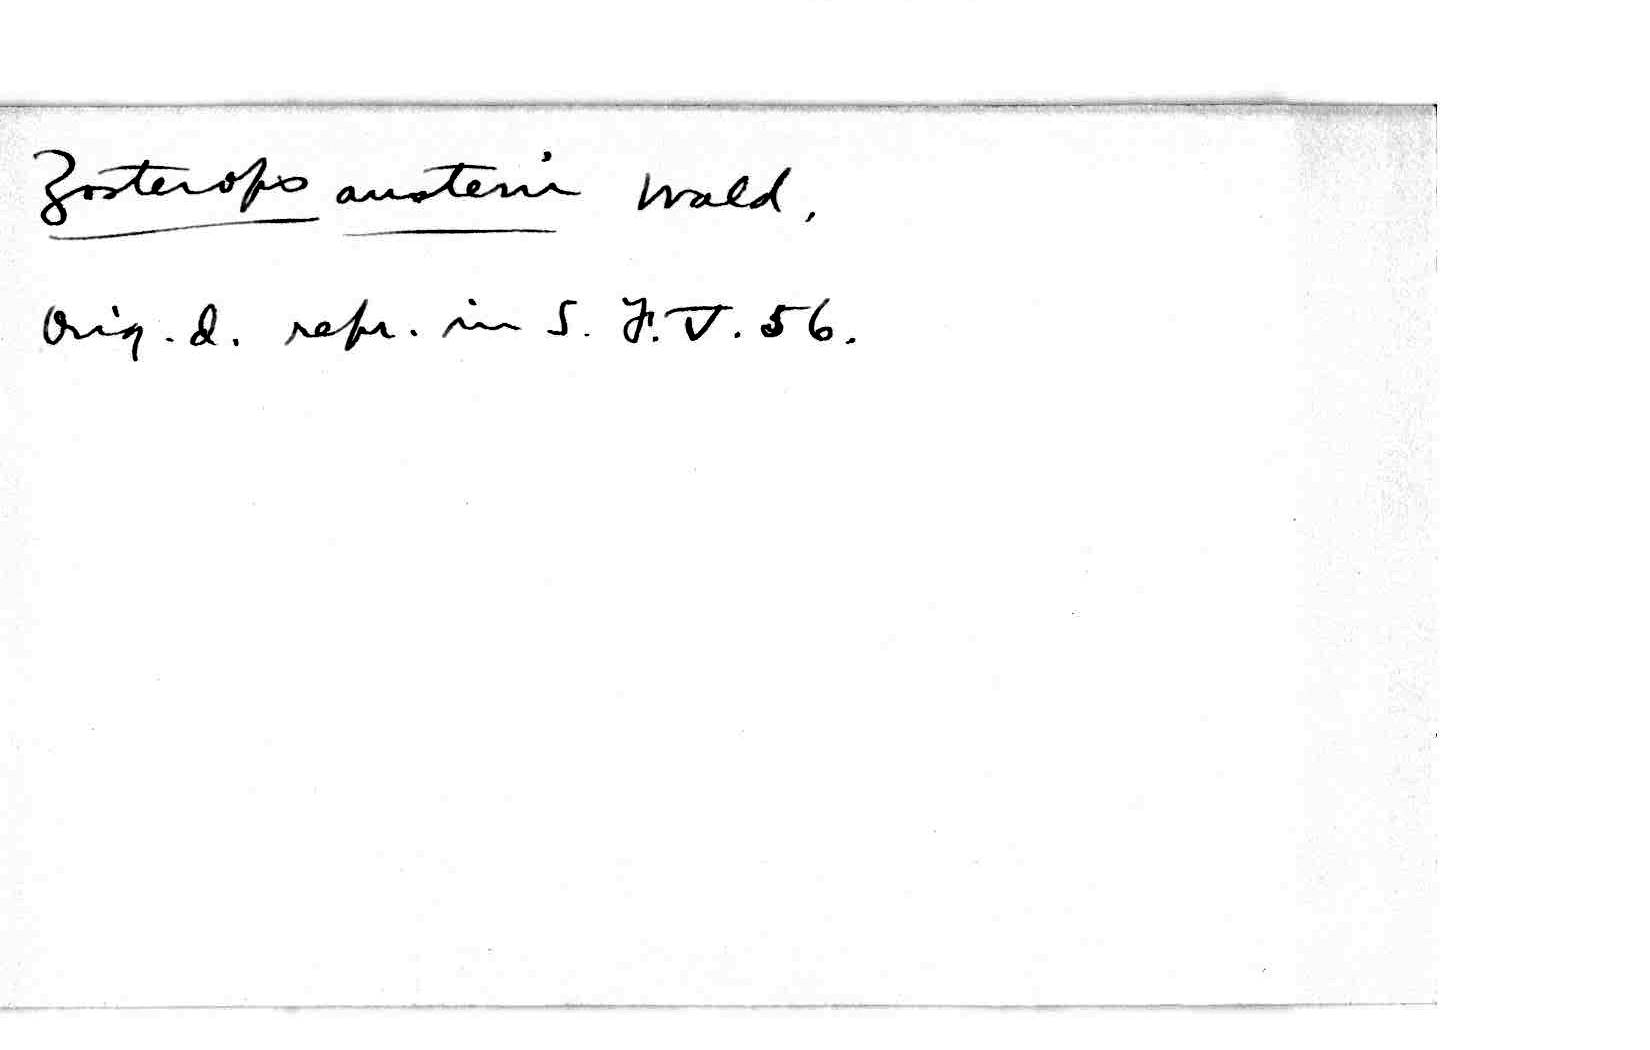 Zosterops austeni Wald.
Orig. d. repr. in S. F. V. 56.